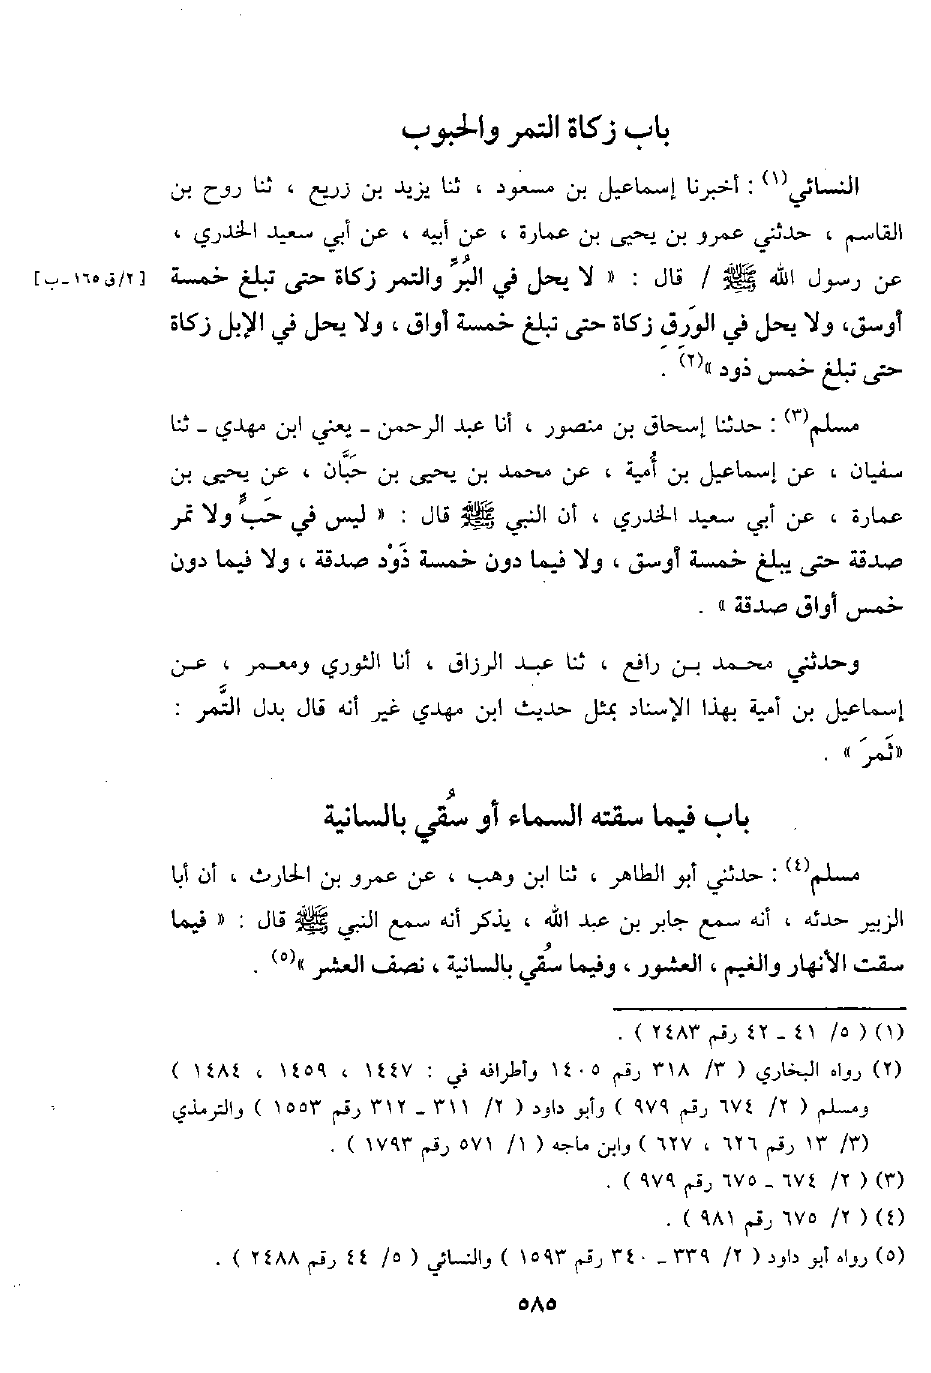 باب زكاة التمر والحبوب
النسائي(١) : أخبرنا إسماعيل بن مسعود ، ثنا يزيد بن زريع ، ثنا روح بن
القاسم ، حدثني عمرو بن يحيى بن عمارة ، عن أبيه ، عن أبي سعيد الخدري ،
عن رسول الله ﷺ / قال : « لا يحل في البُرِّ والتمر زكاة حتى تبلغ خمسة [٢/ق ١٦٥-ب]
أوسق، ولا يحل في الوَرِق زكاة حتى تبلغ خمسة أواق ، ولا يحل في الإبل زكاة
حتى تبلغ خمس ذود »(٢) .
مسلم(٣) : حدثنا إسحاق بن منصور ، أنا عبد الرحمن ـ يعني ابن مهدي ـ ثنا
سفيان ، عن إسماعيل بن أُمية ، عن محمد بن يحيى بن حَبَّان ، عن يحيى بن
عمارة ، عن أبي سعيد الخدري ، أن النبي ﷺ قال : « ليس في حَبٍّ ولا تمر
صدقة حتى يبلغ خمسة أوسق ، ولا فيما دون خمسة ذَوْد صدقة ، ولا فيما دون
خمس أواق صدقة » .
وحدثني محمد بن رافع ، ثنا عبد الرزاق ، أنا الثوري ومعمر ، عن
إسماعيل بن أمية بهذا الإسناد بمثل حديث ابن مهدي غير أنه قال بدل التَّمر :
«ثَمرَ » .
باب فيما سقته السماء أو سُقي بالسانية
مسلم(٤) : حدثني أبو الطاهر ، ثنا ابن وهب ، عن عمرو بن الحارث ، أن أبا
الزبير حدثه ، أنه سمع جابر بن عبد الله ، يذكر أنه سمع النبي ﷺ قال : « فيما
سقت الأنهار والغيم ، العشور ، وفيما سُقي بالسانية ، نصف العشر »(٥) .
(١) ( ٥/ ٤١ ـ ٤٢ رقم ٢٤٨٣ ) .
(٢) رواه البخاري ( ٣/ ٣١٨ رقم ١٤٠٥ وأطرافه في : ١٤٤٧ ، ١٤٥٩ ، ١٤٨٤ )
ومسلم ( ٢/ ٦٧٤ رقم ٩٧٩ ) وأبو داود ( ٢/ ٣١١ ـ ٣١٢ رقم ١٥٥٣ ) والترمذي
(٣/ ١٣ رقم ٦٢٦ ، ٦٢٧ ) وابن ماجه ( ١/ ٥٧١ رقم ١٧٩٣ ) .
(٣) ( ٢/ ٦٧٤ ـ ٦٧٥ رقم ٩٧٩ ) .
(٤) ( ٢/ ٦٧٥ رقم ٩٨١ ) .
(٥) رواه أبو داود ( ٢/ ٣٣٩ ـ ٣٤٠ رقم ١٥٩٣ ) والنسائي ( ٥/ ٤٤ رقم ٢٤٨٨ ) .
٥٨٥